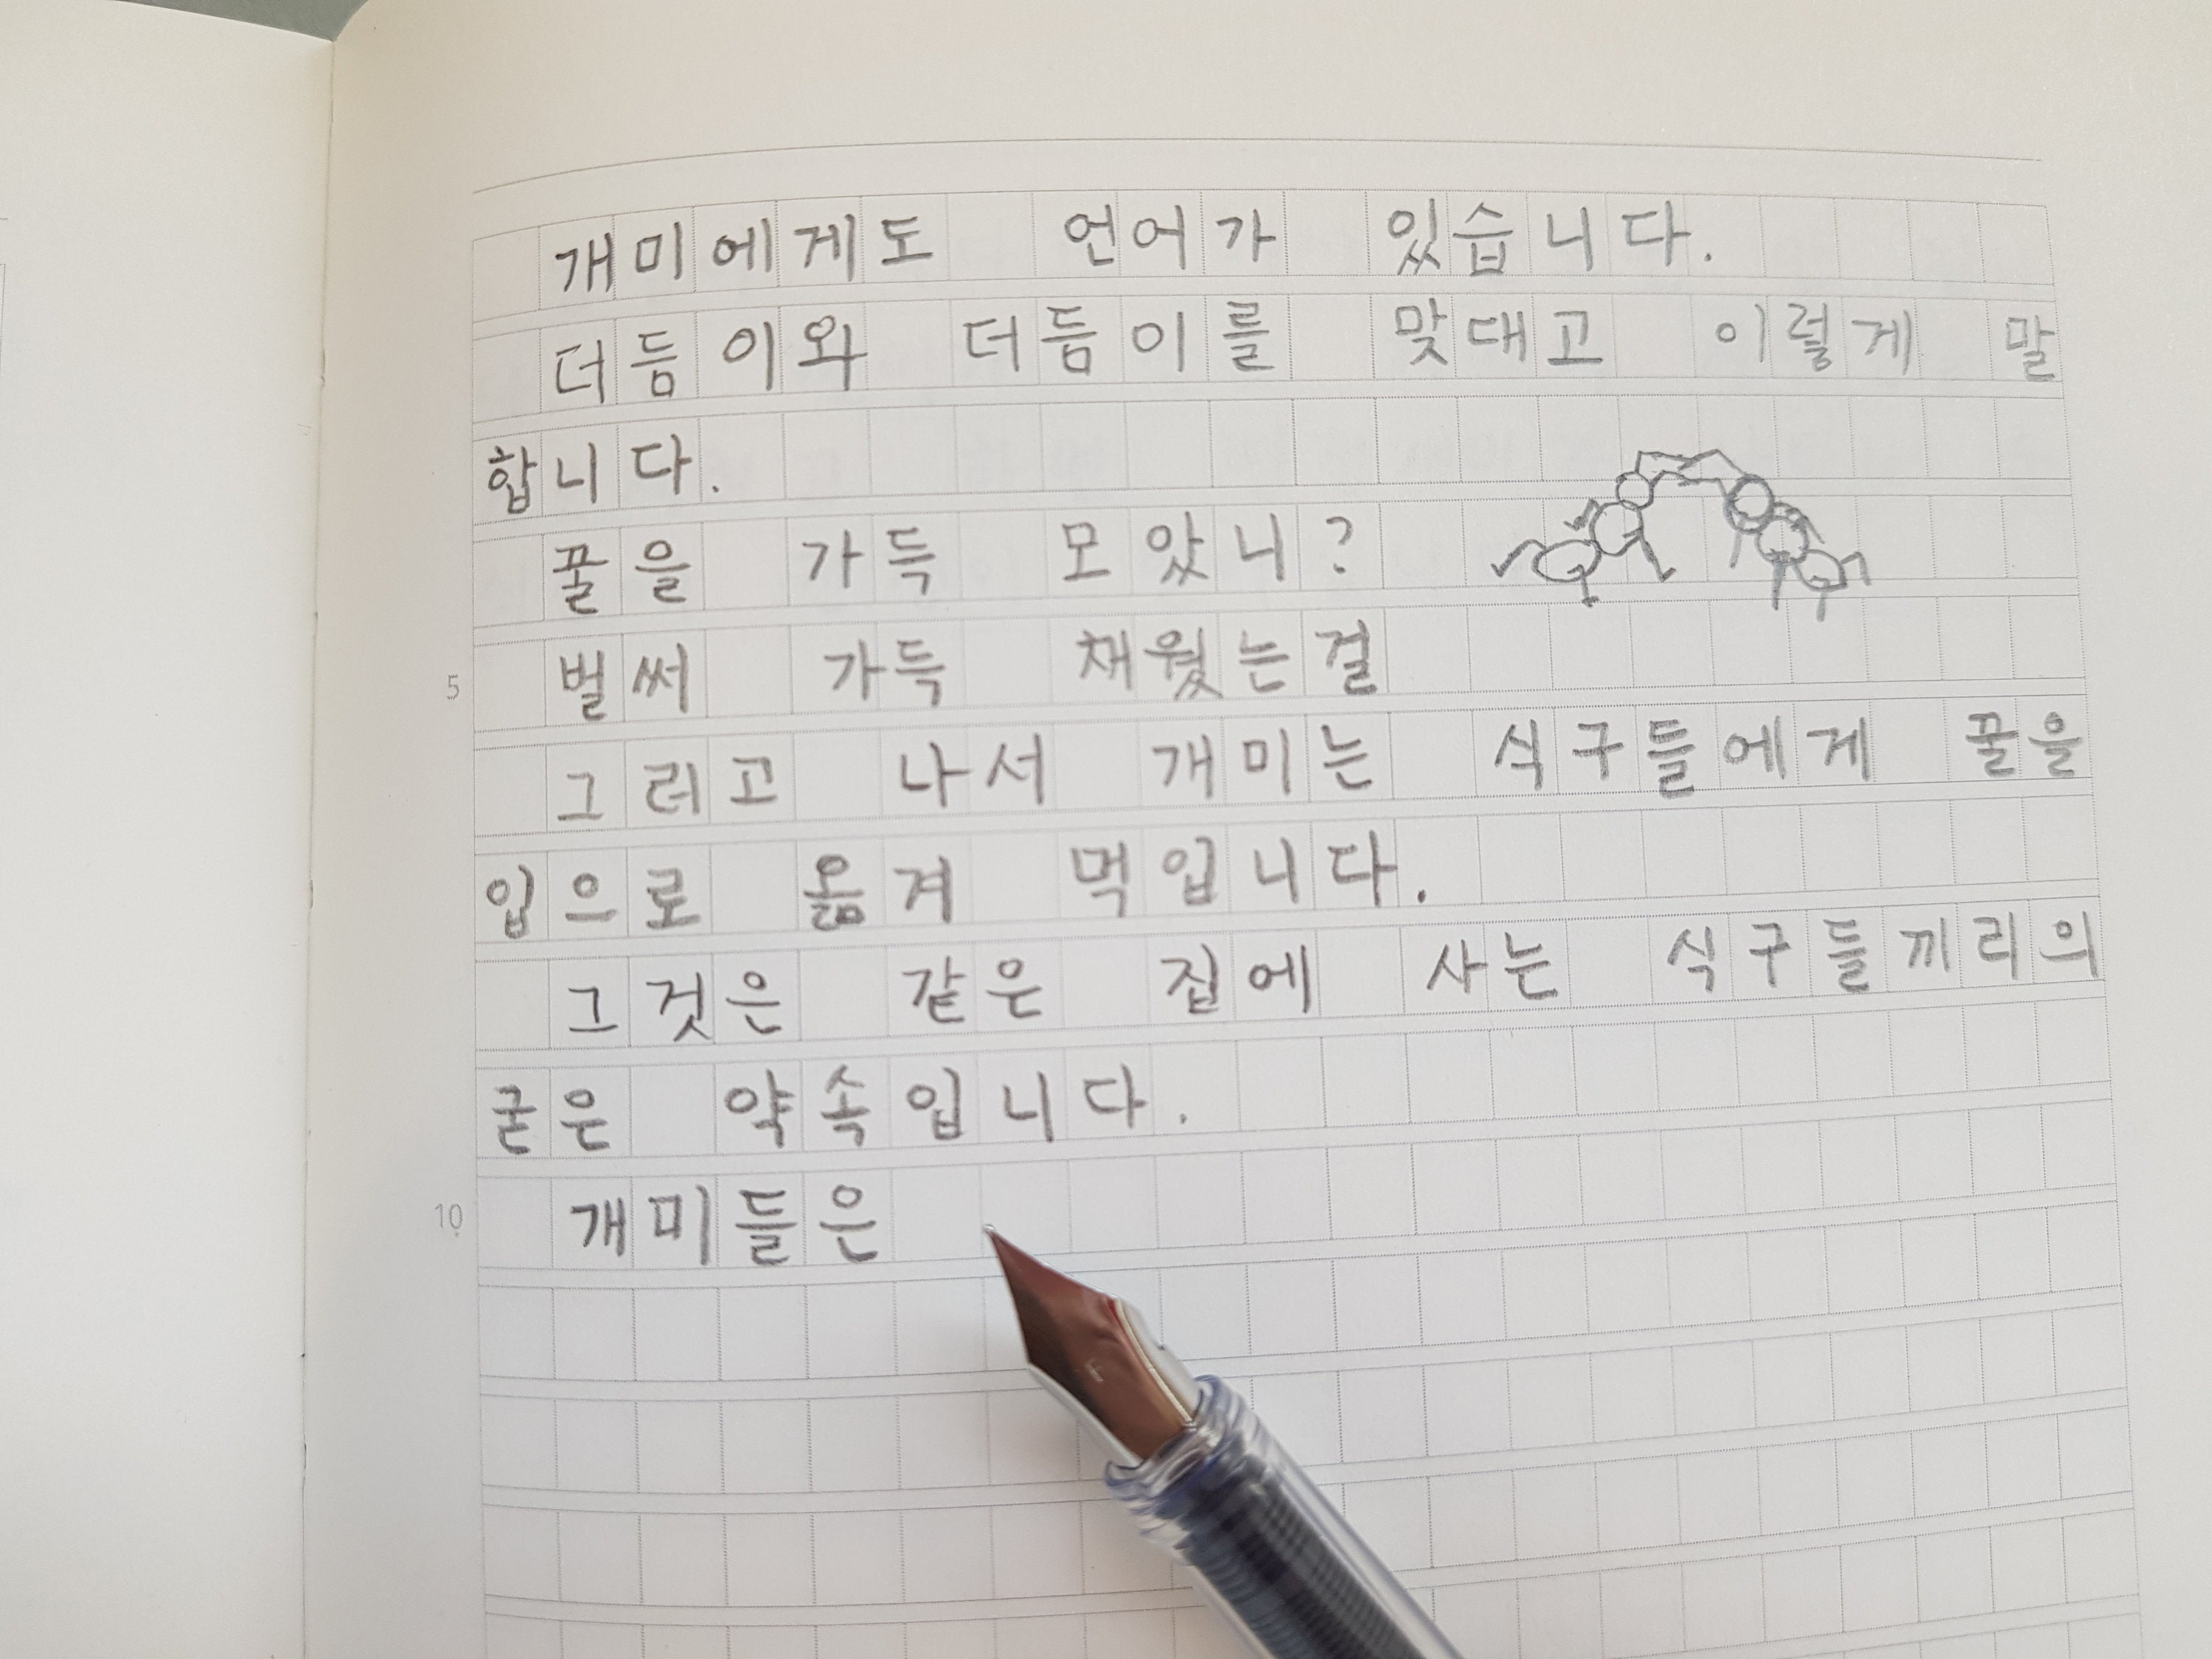 개미에게도 언어가 있습니다.
더듬이와 더듬이를 맞대고 이렇게 말
합니다.
꿀을 가득 모았니?
5 벌써 가득 채웠는걸
그리고 나서 개미는 식구들에게 꿀을
입으로 옮겨 먹입니다.
그것은 같은 집에 사는 식구들끼리의
굳은 약속입니다.
10 개미들은
F